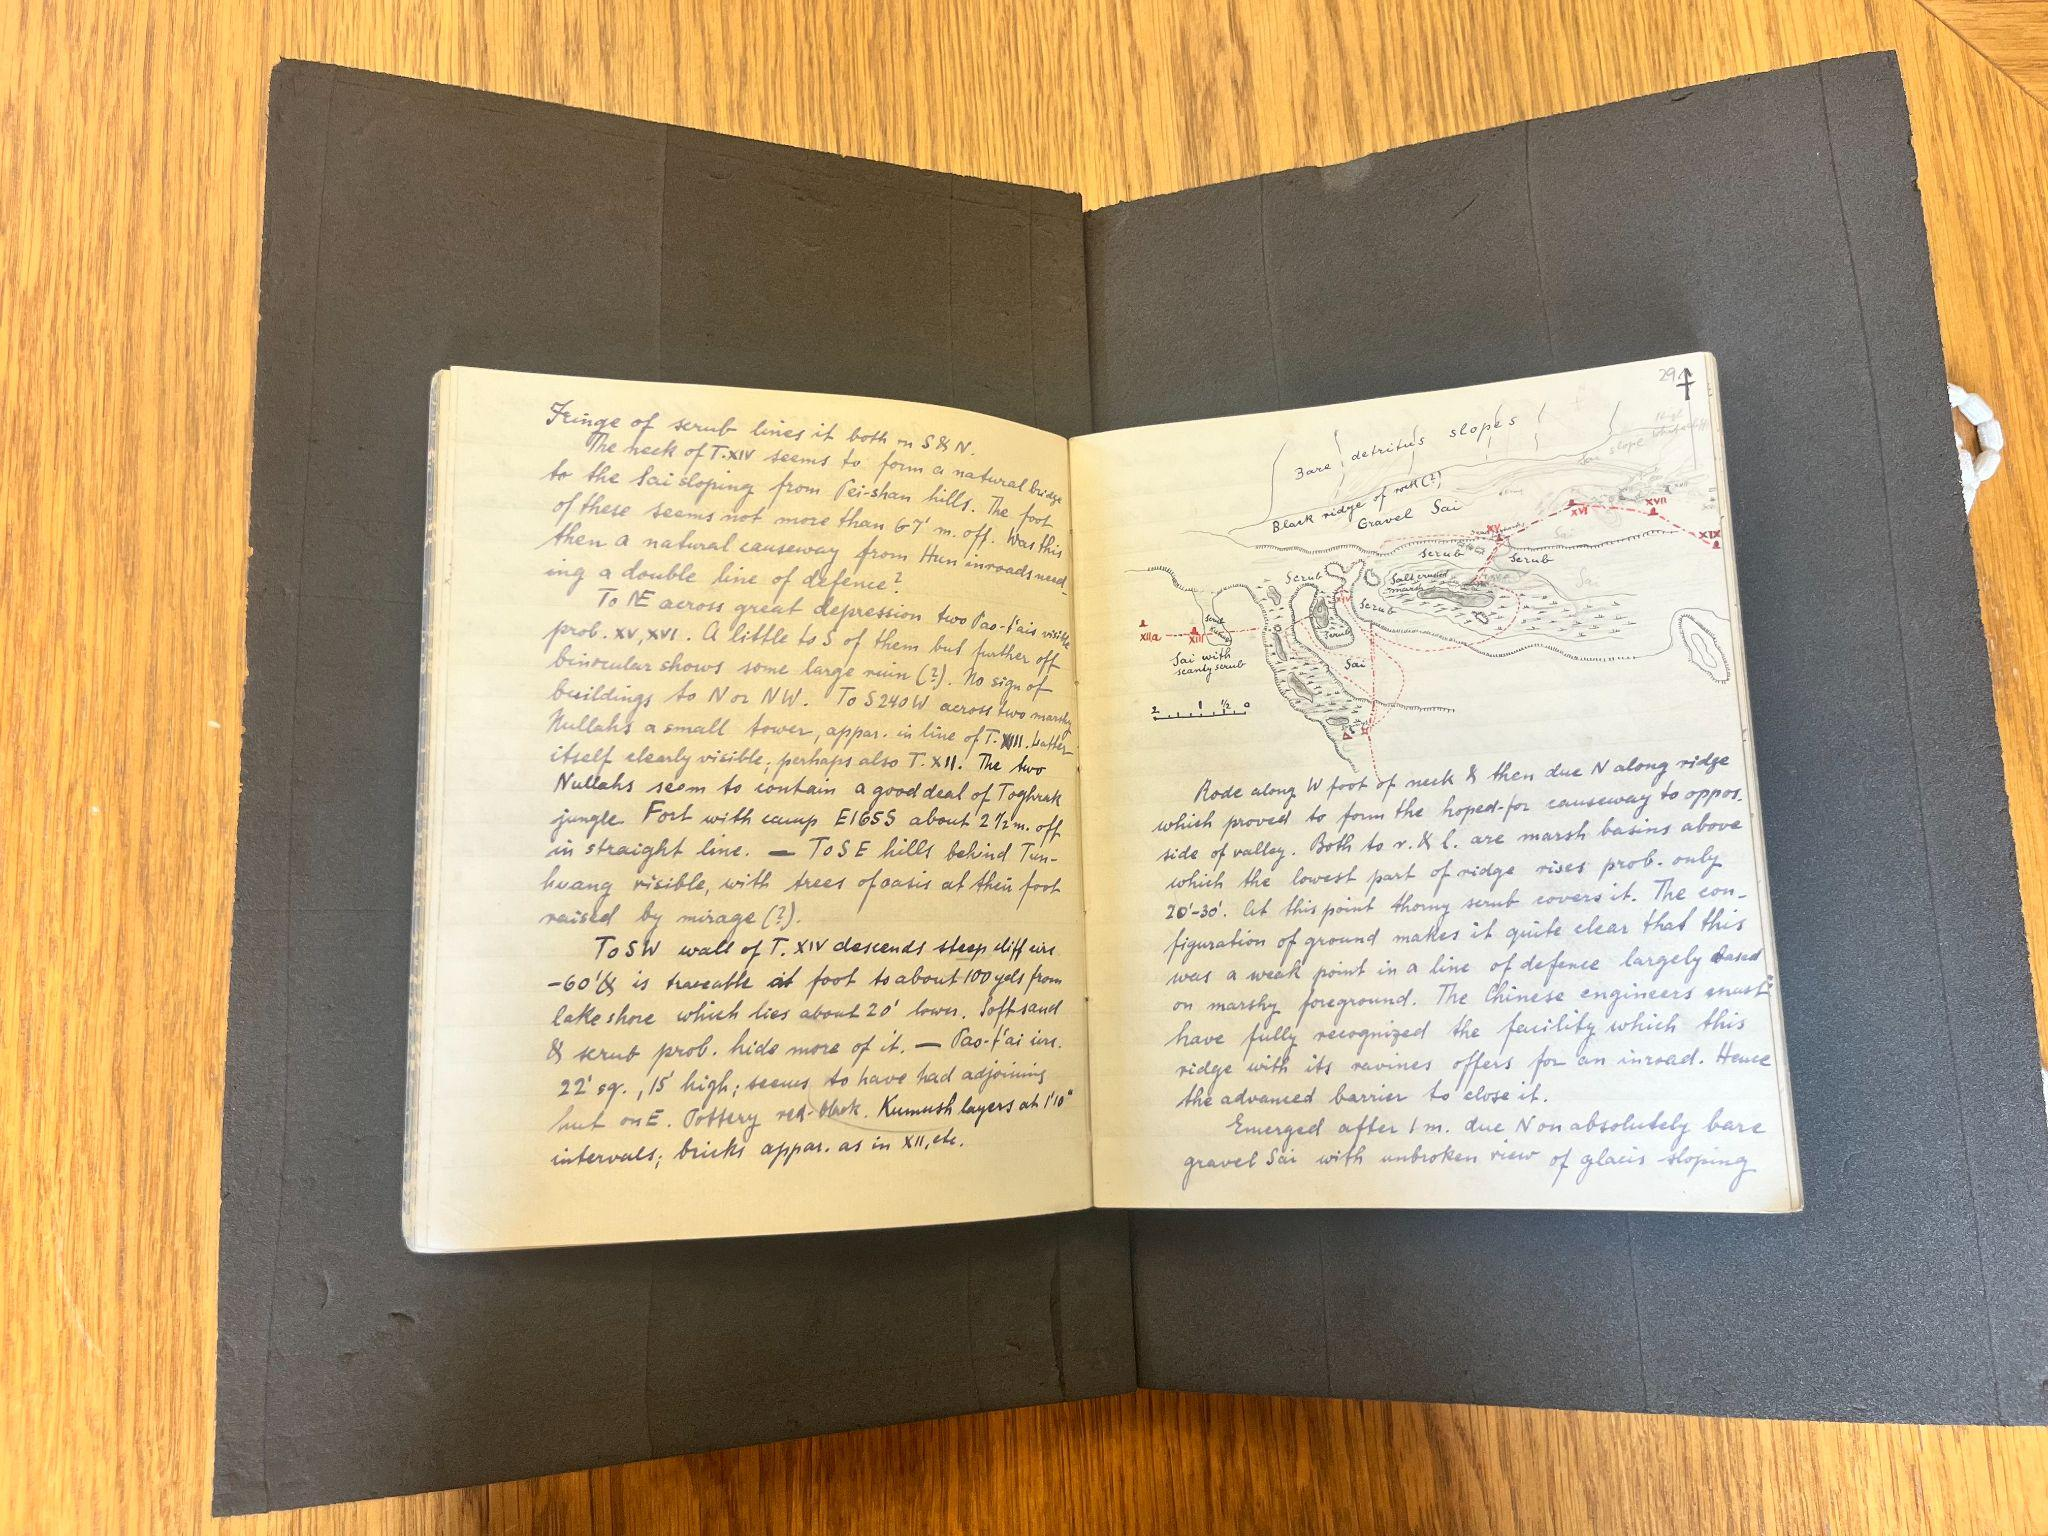 Fringe of scrub lines it both on S & N.
The neck of T.XIV seems to form a natural bridge
to the Sai sloping from Pei-shan hills. The foot
of these seems not more than 6-7 m. off. Was this
then a natural causeway from Hun inroads need-
ing a double line of defence?
To NE across great depression two Pao-t'ais visible
prob. XV, XVI. A little to S of them but further off
binocular shows some large ruin (?). No sign of
buildings to N or NW. To S240W across two marshy
Nullahs a small tower, appar. in line of T. XIII. Latter
itself clearly visible; perhaps also T. XII. The two
Nullahs seem to contain a good deal of Toghrak
jungle. Fort with camp E165S about 2 1/2 m. off
in straight line. — To SE hills behind Tun-
huang visible, with trees of oasis at their foot
raised by mirage (?).
To SW wall of T. XIV descends steep cliff circ.
-60' & is traceable at foot to about 100 yds from
lake shore which lies about 20' lower. Soft sand
& scrub prob. hide more of it. — Pao-t'ai circ.
22' sq., 15' high; seems to have had adjoining
hut on E. Pottery red-black. Kumush layers at 1'10"
intervals; bricks appar. as in XII, etc.
29
Bare detritus slopes
Sai slope
Black ridge of rock (?)
Gravel Sai
XVII
XVI
XV
XIX
Sai
Scrub
Scrub
Scrub
Salt crusted
marsh
Sai
XIV
Scrub
XIIa
XIII
Scrub
Sai with
scanty scrub
Sai
2 1 1/2 0
Rode along W foot of neck & then due N along ridge
which proved to form the hoped-for causeway to oppos.
side of valley. Both to r. & l. are marsh basins above
which the lowest part of ridge rises prob. only
20'-30'. At this point thorny scrub covers it. The con-
figuration of ground makes it quite clear that this
was a weak point in a line of defence largely based
on marshy foreground. The Chinese engineers must
have fully recognized the facility which this
ridge with its ravines offers for an inroad. Hence
the advanced barrier to close it.
Emerged after 1 m. due N on absolutely bare
gravel Sai with unbroken view of glacis sloping